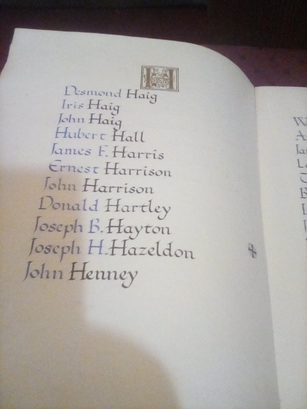 H
Desmond Haig
Iris Haig
John Haig
Hubert Hall
James F. Harris
Ernest Harrison
John Harrison
Donald Hartley
Joseph B. Hayton
Joseph H. Hazeldon
John Henney